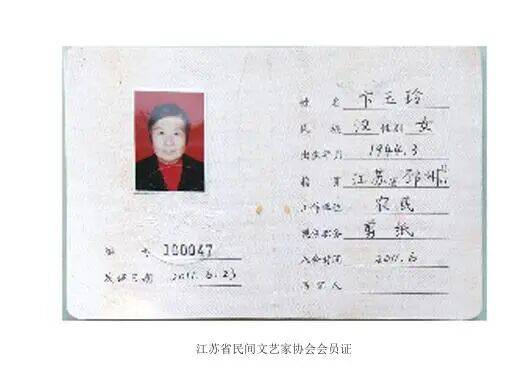 姓名 卞玉玲
民族 汉 性别 女
出生年月 1944.3
籍贯 江苏省邳州市
工作单位 农民
现任职务 剪纸
编号 100047
入会时间 2011.6
发证日期 2011.6.23
江苏省民间文艺家协会会员证